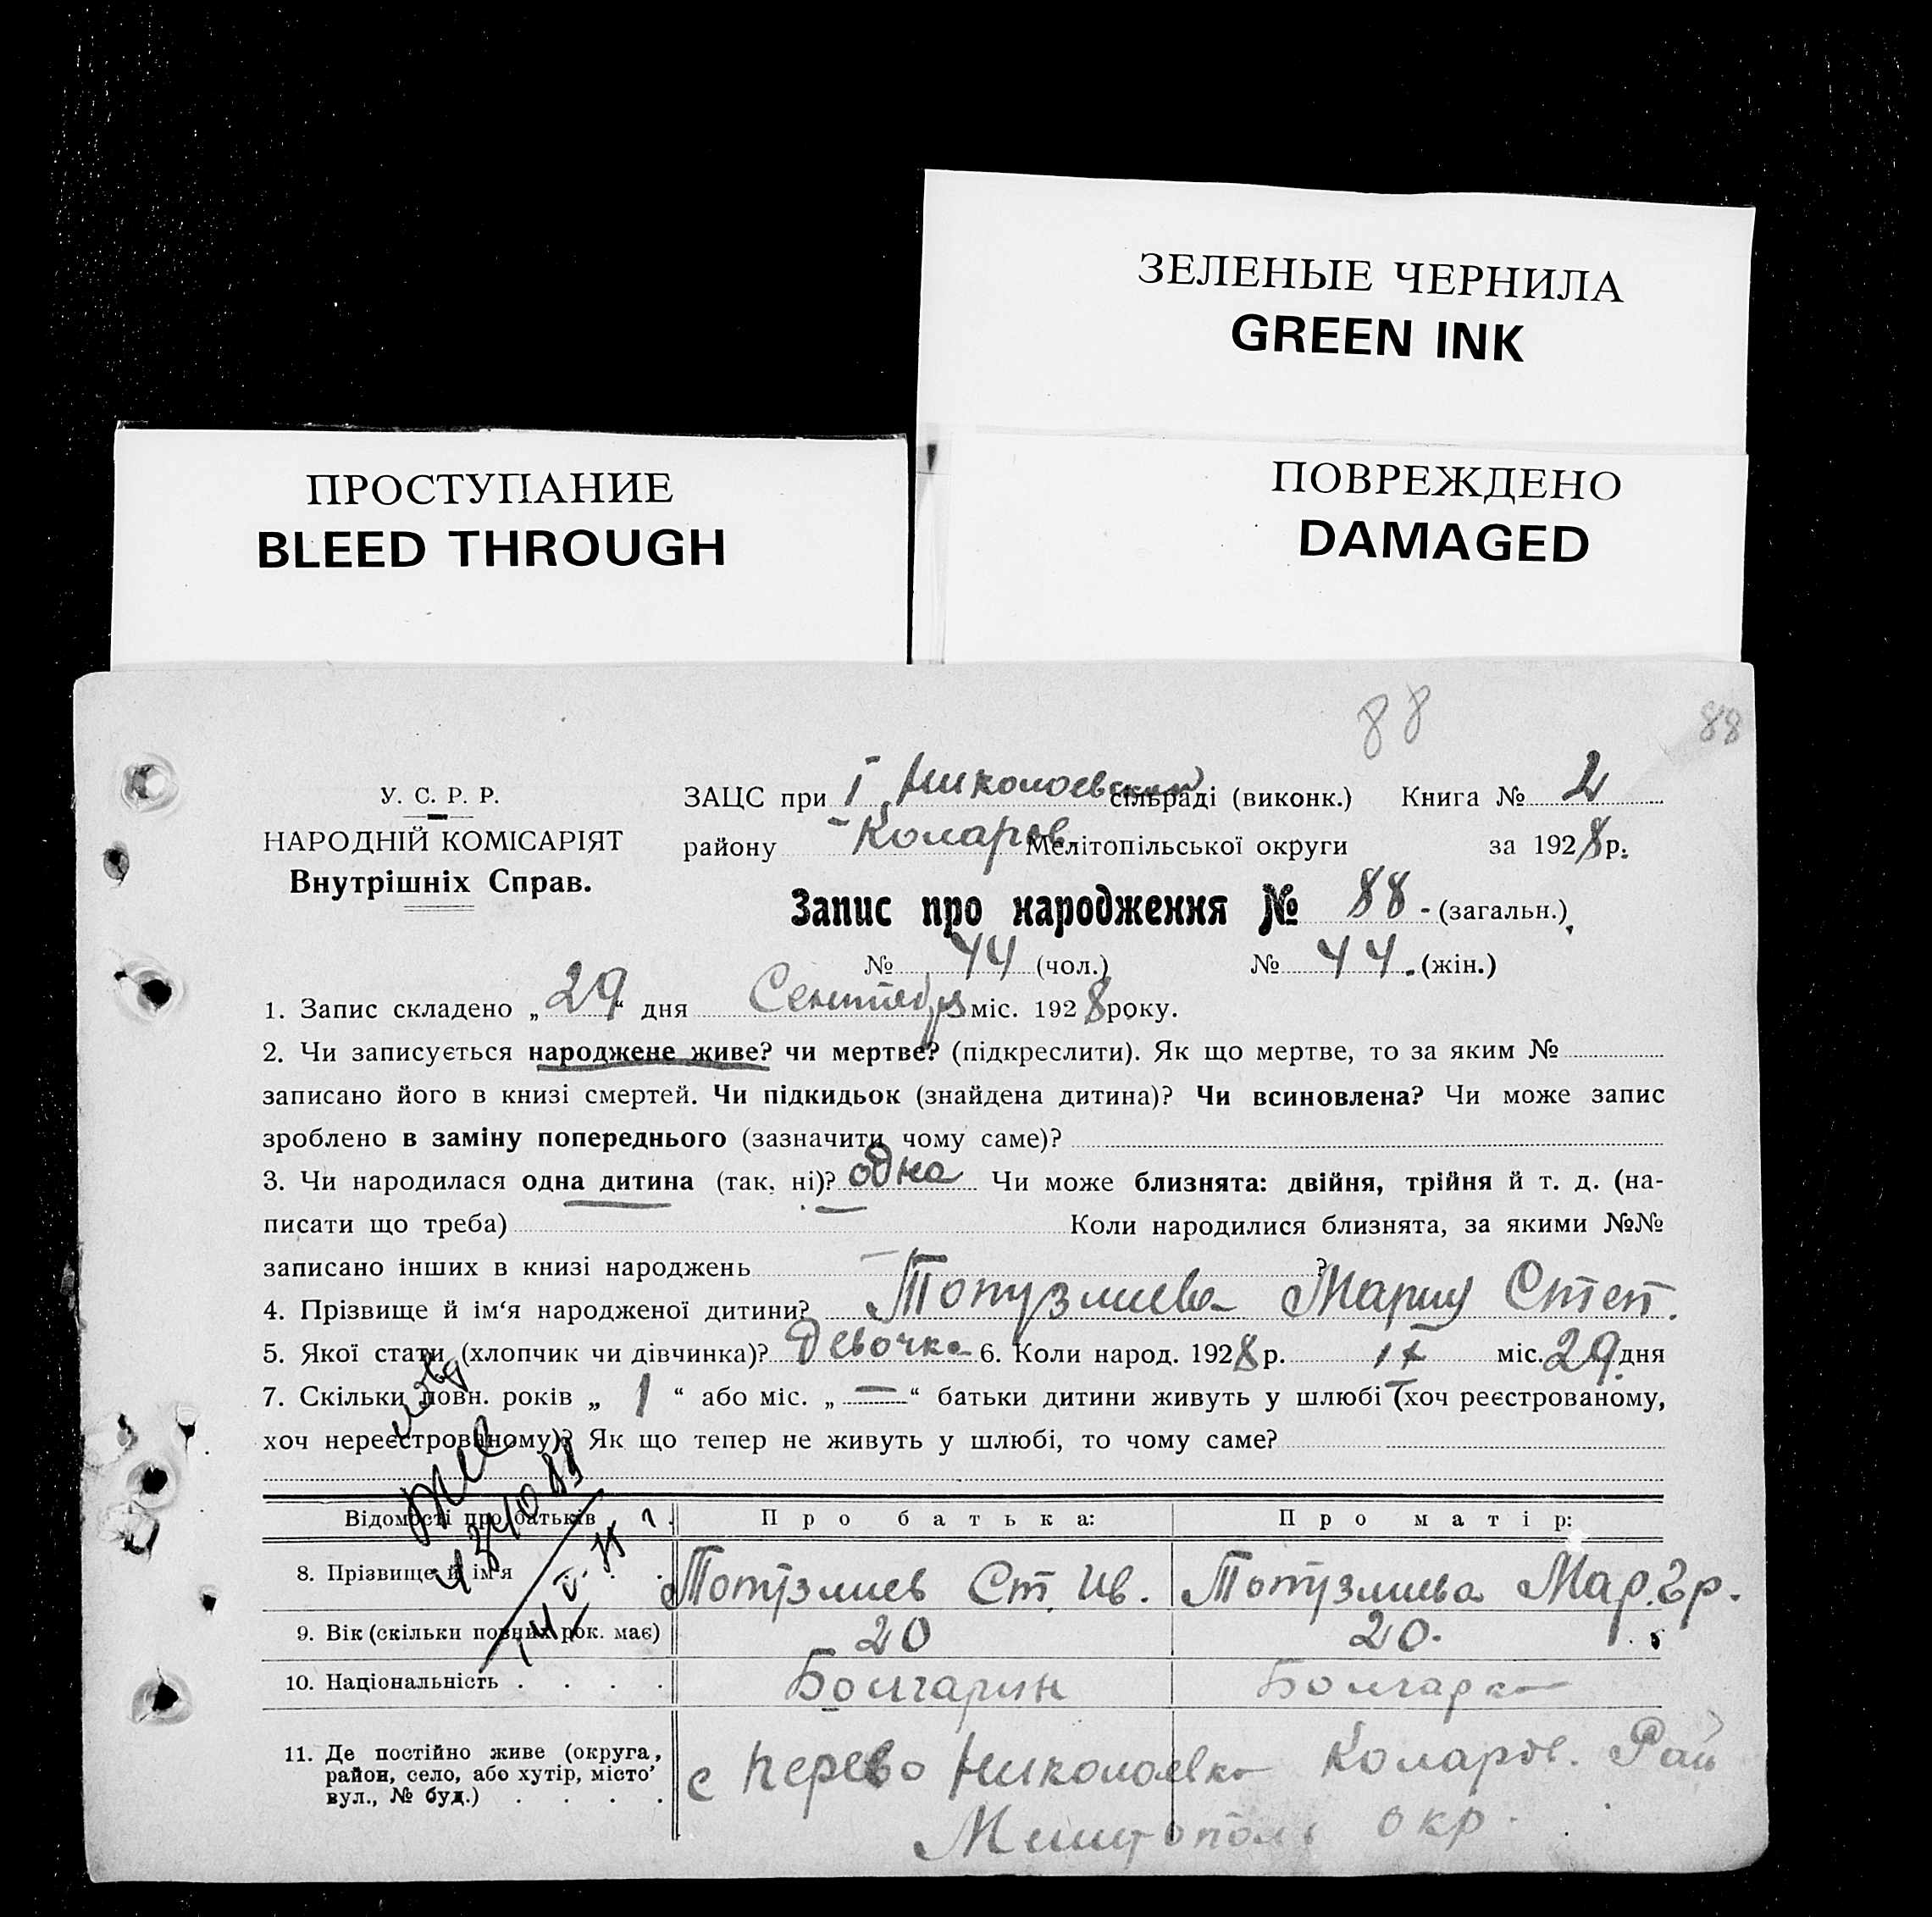 ЗЕЛЕНЫЕ ЧЕРНИЛА
GREEN INK
ПРОСТУПАНИЕ
BLEED THROUGH
ПОВРЕЖДЕНО
DAMAGED
88 88
У. С. Р. Р.
НАРОДНІЙ КОМІСАРІЯТ
Внутрішніх Справ.
ЗАЦС при I Николоевской сільраді (виконк.) Книга № 2
району Коларов. Мелітопільської округи за 1928 р.
Запис про народження № 88 - (загальн.)
№ 44 (чол.) № 44. (жін.)
1. Запис складено „29“ дня Сентября міс. 1928 року.
2. Чи записується народжене живе? чи мертве? (підкреслити). Як що мертве, то за яким №
записано його в книзі смертей. Чи підкидьок (знайдена дитина)? Чи всиновлена? Чи може запис
зроблено в заміну попереднього (зазначити чому саме)?
3. Чи народилася одна дитина (так, ні)? одна Чи може близнята: двійня, трійня й т. д. (на-
писати що треба) Коли народилися близнята, за якими №№
записано інших в книзі народжень ?
4. Прізвище й ім‘я народженої дитини? Топузлиева Мария Степ.
5. Якої стати (хлопчик чи дівчинка)? Девочка 6. Коли народ. 1928 р. IX міс. 29 дня
7. Скільки повн. років „ 1 “ або міс. „ — “ батьки дитини живуть у шлюбі (хоч реєстрованому,
хоч нереєстрованому)? Як що тепер не живуть у шлюбі, то чому саме?
Відомості про батьків Про батька: Про матір:
8. Прізвище й ім'я Топузлиев Ст. Ив. Топузлиева Мар. Гр.
9. Вік (скільки повних рок. має) 20 20.
10. Національність . . . . Болгарин Болгарка
11. Де постійно живе (округа,
район, село, або хутір, місто’
вул., № буд.) . . . . с Перво Николоевка Коларов. Рай
Мелитополь окр.